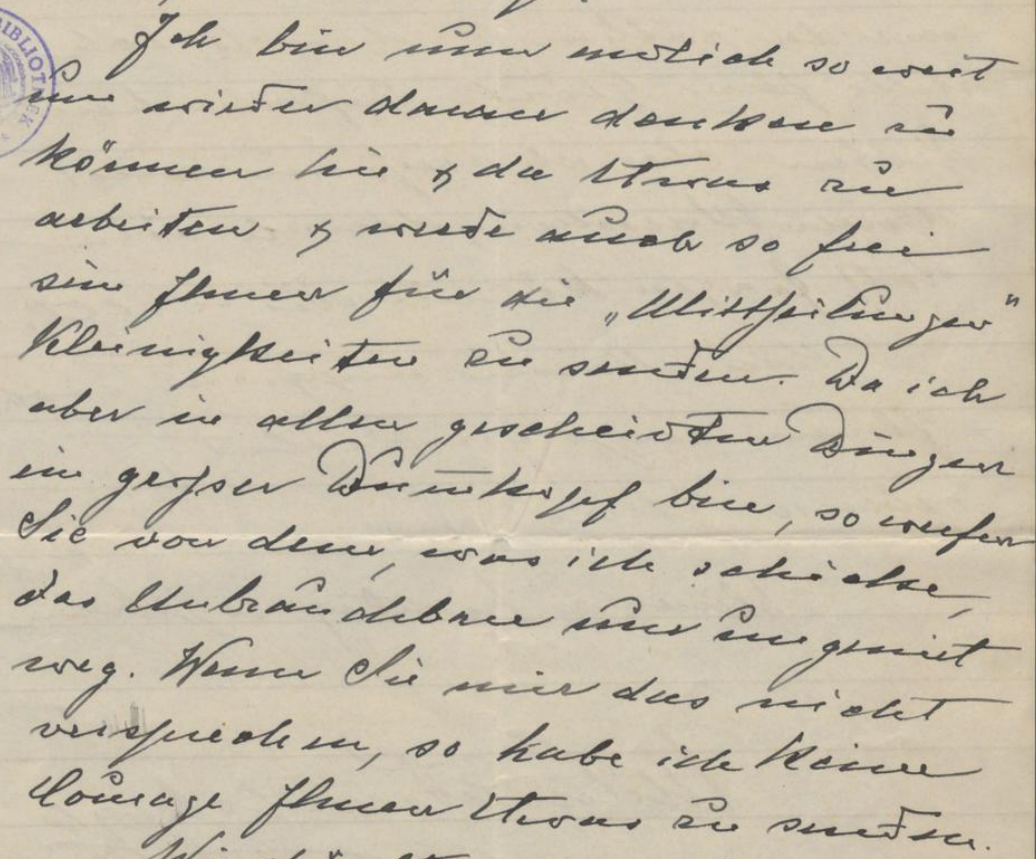 Ich bin nun endlich so weit
um wieder daran denken zu
können hie & da Etwas zu
arbeiten & werde auch so frei
sein Ihnen für die „Mittheilungen“
Kleinigkeiten zu senden. Da ich
aber in allen gescheidten Dingen
ein grosser Dum̅kopf bin, so werfen
Sie von dem, was ich schicke,
das Unbrauchbare nur ungenirt
weg. Wenn Sie mir das nicht
versprechen, so habe ich keine
Courage Ihnen Etwas zu senden.